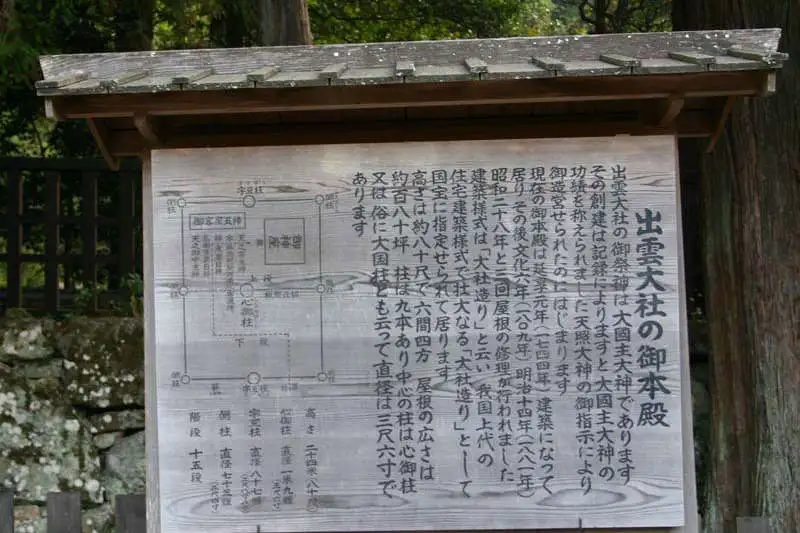 出雲大社の御本殿
出雲大社の御祭神は大國主大神であります
その創建は記録によりますと大國主大神の
功績を称えられました天照大神の御指示により
御造営せられたのにはじまります
現在の御本殿は延享元年(一七四四年)建築になって
居りその後文化六年(一八〇九年)明治十四年(一八八一年)
昭和二十八年と三回屋根の修理が行われました
建築様式は「大社造り」と云い我国上代の
住宅建築様式で壮大なる「大社造り」として
国宝に指定せられて居ります
高さは約八十尺で六間四方 屋根の広さは
約百八十坪 柱は九本あり中心の柱は心御柱
又は俗に大国柱とも云って直径は三尺六寸で
あります
高さ 二十四米(八十尺)
心御柱 直径 一米九糎
宇豆柱 直径 八十七糎
側柱 直径 七十三糎
階段 十五段
宇豆柱
側柱
側柱
御客座五神
御神座
心御柱
上段
下段
側柱
宇豆柱